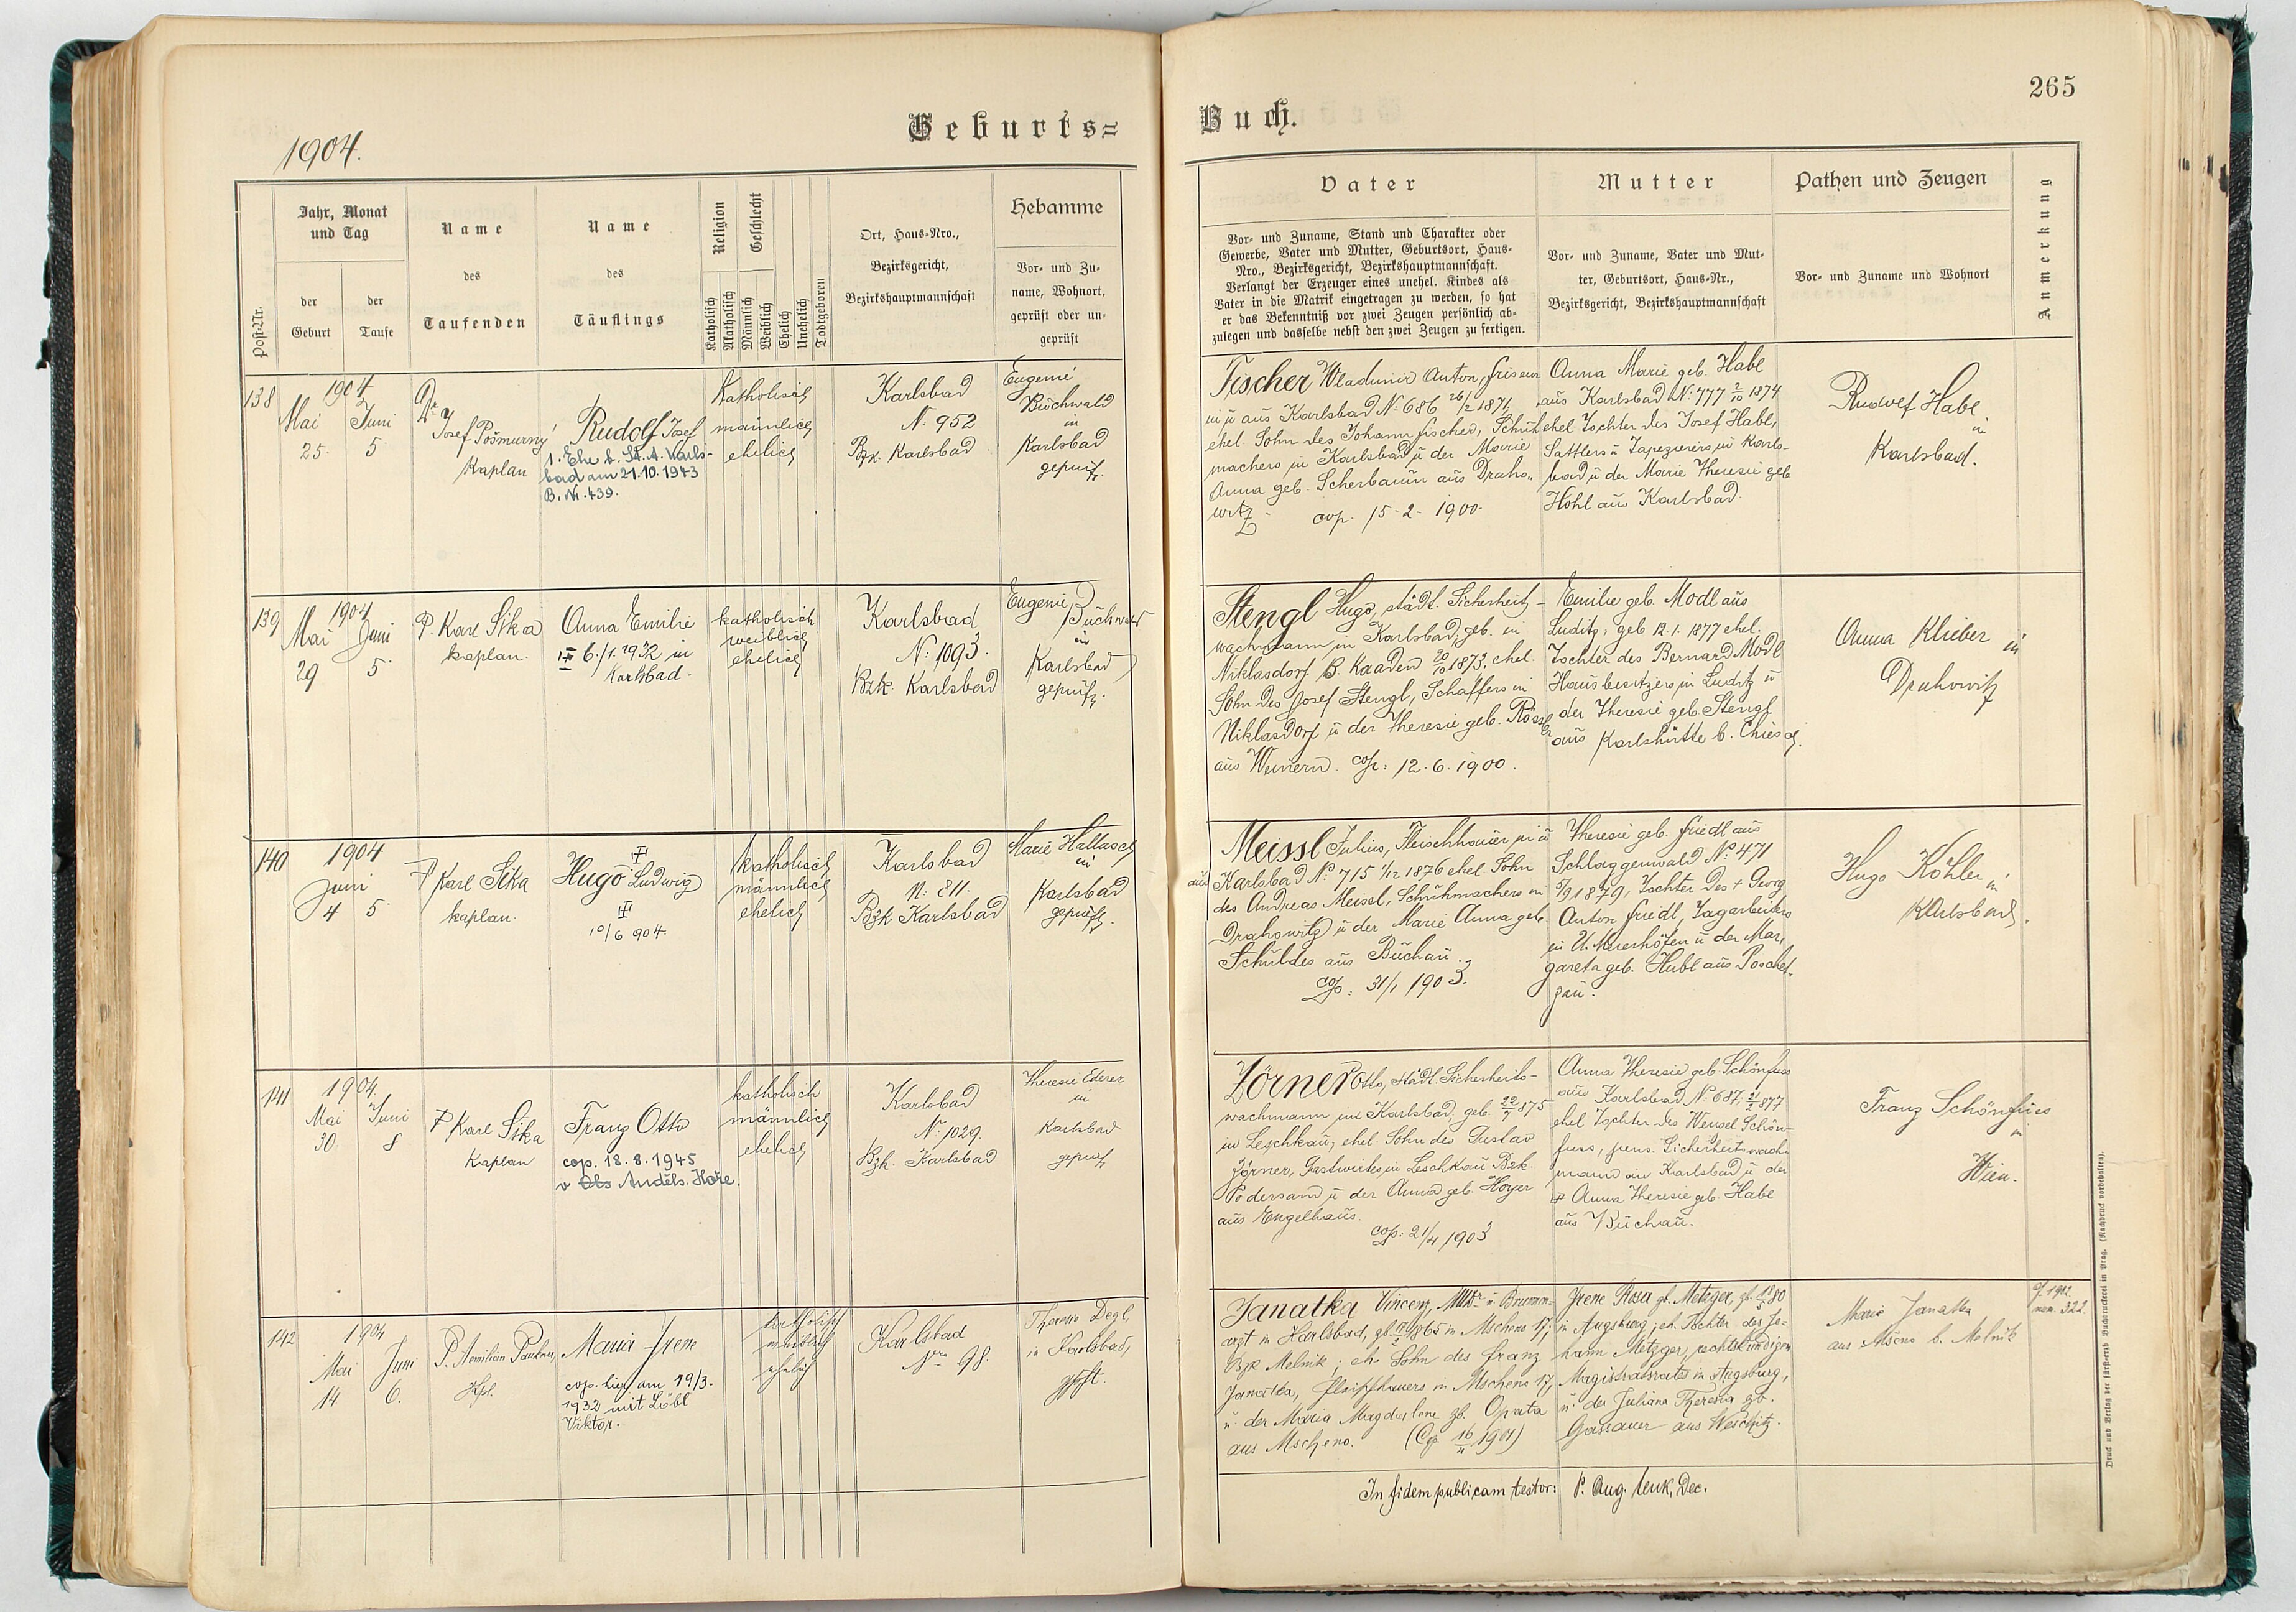 1904.
Geburts=
Post-Nr.
Jahr, Monat
und Tag
der
Geburt
der
Taufe
Name
des
Taufenden
Name
des
Täuflings
Religion
Geschlecht
Katholisch
Akatholisch
Männlich
Weiblich
Ehelich
Unehelich
Todtgeboren
Ort, Haus-Nro.,
Bezirksgericht,
Bezirkshauptmannschaft
Hebamme
Vor- und Zu-
name, Wohnort,
geprüft oder un-
geprüft
138
1904
Mai Juni
25. 5.
Dr
Josef Pošmurný
Kaplan
Rudolf Josef
1. Ehe b. St. A. Karls-
bad am 21.10.1943
B. Nr. 439.
Katholisch
männlich
ehelich
Karlsbad
N. 952
Bzk. Karlsbad
Eugenie
Buchwald
in
Karlsbad
geprüft.
139
1904
Mai Juni
29 5.
P. Karl Sika
kaplan.
Anna Emilie
6./1. 1932 in
Karlsbad.
katholisch
weiblich
ehelich
Karlsbad
N: 1093.
Bzk. Karlsbad
Eugenie
Buchwald
in
Karlsbad
geprüft.
140
1904
Juni
4 5.
P Karl Sika
kaplan.
Hugo Ludwig
10/6 904.
katholisch
männlich
ehelich
Karlsbad
N: 811.
Bzk Karlsbad
Marie Hallasch
in
Karlsbad
geprüft.
141
1904.
Mai Juni
30. 8
P Karl Sika
Kaplan
Franz Otto
cop. 18.8.1945
v Obs Anděls. Hoře.
katholisch
männlich
ehelich
Karlsbad
N. 1029.
Bzk. Karlsbad
Theresie Ederer
in
Karlsbad
geprüft
142
1904
Mai Juni
14 6.
P. Aemilian Paukner,
Kpl.
Maria Irene
cop. hier am 19/3.
1932 mit Löbl
Viktor.
katholisch
weiblich
ehelich
Karlsbad
Nro 98.
Theresia Degl,
in Karlsbad,
gepft.
Buch.
265
Vater
Vor- und Zuname, Stand und Charakter oder
Gewerbe, Vater und Mutter, Geburtsort, Haus-
Nro., Bezirksgericht, Bezirkshauptmannschaft.
Verlangt der Erzeuger eines unehel. Kindes als
Vater in die Matrik eingetragen zu werden, so hat
er das Bekenntniß vor zwei Zeugen persönlich ab-
zulegen und dasselbe nebst den zwei Zeugen zu fertigen.
Mutter
Vor- und Zuname, Vater und Mut-
ter, Geburtsort, Haus-Nr.,
Bezirksgericht, Bezirkshauptmannschaft
Pathen und Zeugen
Vor- und Zuname und Wohnort
Anmerkung
Fischer Wladimir Anton, friseur
in u aus Karlsbad N: 686 26/2 1871,
ehel. Sohn des Johann Fischer, Schuh
machers in Karlsbad u der Marie
Anna geb. Scherbaum aus Draho„
witz
cop. 15-2-1900.
Anna Marie geb. Habl
aus Karlsbad N: 777 2/10 1874
ehel Tochter des Josef Habl,
Sattlers u Tapezierers in Karls-
bad u der Marie Theresie geb
Hohl aus Karlsbad.
Rudolf Habl
in
Karlsbad.
Stengl Hugo, städt. Sicherheits-
wachmann in Karlsbad, geb. in
Niklasdorf B. Kaaden 20/10 1873, ehel.
Sohn des Josef Stengl, Schaffers in
Niklasdorf u der Theresie geb. Rössler
aus Wernern. cop: 12.6.1900.
Emilie geb. Modl aus
Luditz, geb 12.1.1877 ehel.
Tochter des Bernard Modl
Hausbesitzers in Luditz u
der Theresie geb. Stengl
aus Karlshütte b. Chiesch.
Anna Klieber in
Drahowitz
Meissl Julius, Fleischhauer in u
aus Karlsbad No 715 1/12 1876 ehel Sohn
des Andreas Meissl, Schuhmachers in
Drahowitz u der Marie Anna geb.
Schuldes aus Buchau.
cop: 31/1 1903.
Theresie geb. Friedl aus
Schlaggenwald No 471
5/9 1879, Tochter des + Georg
Anton Friedl, Tagarbeiters
in U. Maierhöfen u der Mar,
gareta geb. Hubl aus Poschet-
zau.
Hugo Köhler
in
Karlsbad.
Zörner Otto, städt. Sicherheits-
wachmann in Karlsbad, geb. 22/7 875
in Leschkau, ehel Sohn des Gustav
Zörner, Gastwirtes in Leschkau Bzk.
Podersam u der Anna geb. Hoyer
aus Engelhaus.
cop: 21/4 1903
Anna Theresie geb. Schönfuss
aus Karlsbad No 687, 21/2 877
ehel Tochter des Wenzel Schön-
fuss, pens. Sicherheitswach
mann in Karlsbad u der
+ Anna Theresie geb. Habl
aus Buchau.
Franz Schönfuss
in
Wien.
Janatka Vincenz, MUDr u. Brunnen-
arzt in Karlsbad, gb. 1865 in Mscheno 17,
Bzk Melnik; eh. Sohn des Franz
Janatka, Fleischhauers in Mscheno 17,
u. der Maria Magdalena gb. Opata
aus Mscheno. (Cop 16/4 1901)
Irene Rosa gb. Metzger, gb. 80
in Augsburg; eh. Tochter des Jo-
hann Metzger, rechtskundigen
Magistratsrates in Augsburg,
u. der Juliana Theresia gb.
Gassauer aus Weschitz.
Maria Janatka
aus Mšeno b. Melnik
cf. 1912
num. 322.
In fidem publicam testor: P. Aug. Leuk, Dec.
Druck und Verlag der fürst-erzb Buchdruckerei in Prag. (Nachdruck vorbehalten).